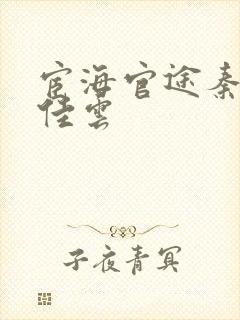 宦海官途秦
佳雲
子夜青冥